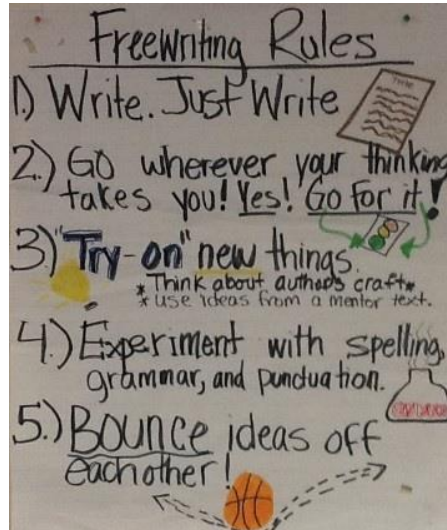 Freewriting Rules
1.) Write. Just Write
2.) Go wherever your thinking
takes you! Yes! Go for it!
3.) "Try-on" new things.
* Think about authors craft*
* use ideas from a mentor text.
4.) Experiment with spelling,
grammar, and punctuation.
5.) BOUNCE ideas off
eachother!